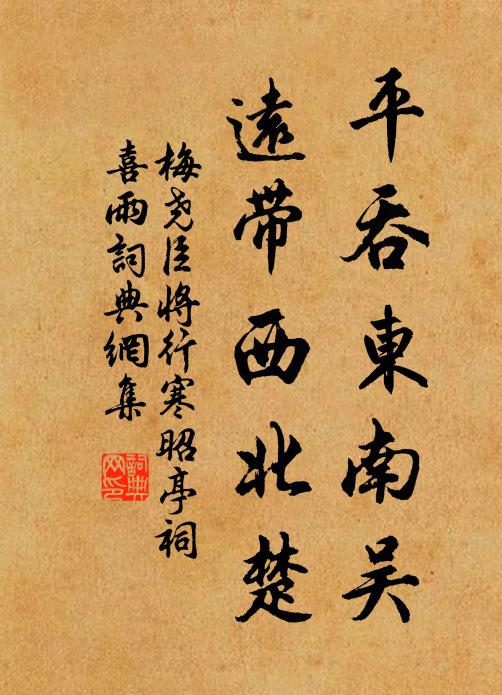 平吞東南吳
遠帶西北楚
梅尧臣將行寒昭亭祠
喜雨詞典網集
詞典
网印